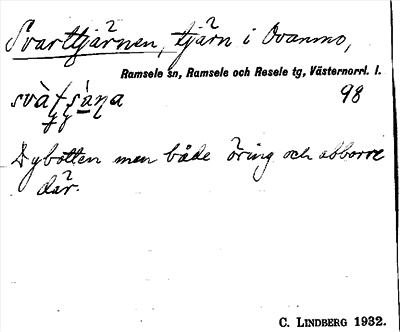 Svarttjärnen, tjärn i Ovanmo,
Ramsele sn, Ramsele och Resele tg, Västernorrl. l.
98
Dybotten men både öring och abborre
där.
C. LINDBERG 1932.